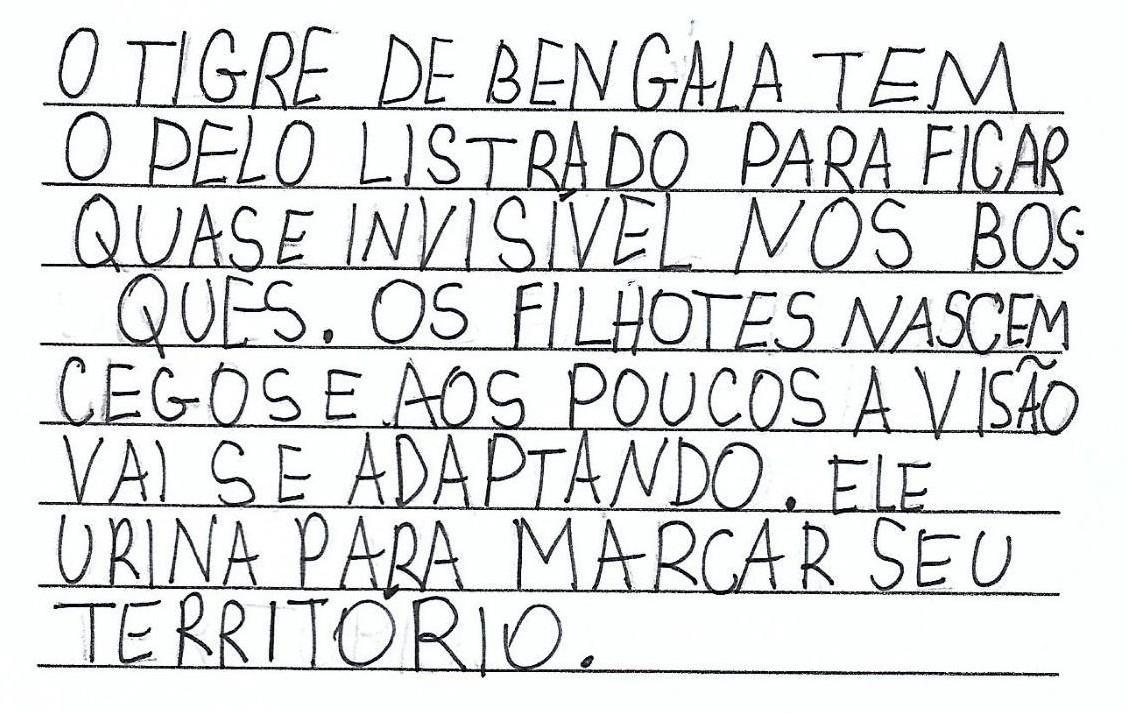 O TIGRE DE BENGALA TEM
O PELO LISTRADO PARA FICAR
QUASE INVISÍVEL NOS BOS-
QUES. OS FILHOTES NASCEM
CEGOS E AOS POUCOS A VISÃO
VAI SE ADAPTANDO. ELE
URINA PARA MARCAR SEU
TERRITÓRIO.